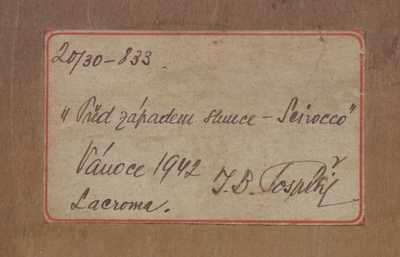 20/30-833
„Před západem slunce – Scirocco"
Vánoce 1942
J. B.
Lacroma.